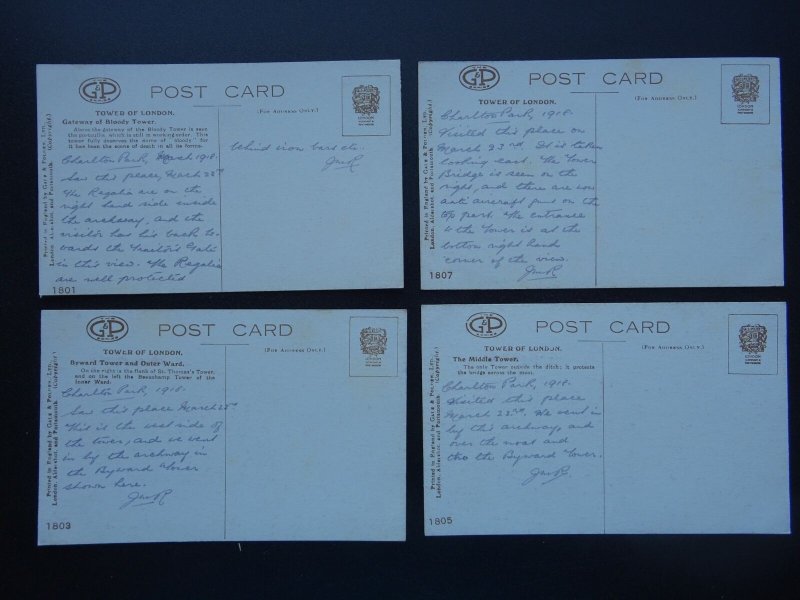 THE
G&P
SERIES
POST CARD
TOWER OF LONDON.
(FOR ADDRESS ONLY.)
Gateway of Bloody Tower.
Above the gateway of the Bloody Tower is seen
the portcullis, which is still in working order. This
tower fully deserves the name of "bloody" for
it has been the scene of death in all its forms.
Charlton Park, March 1918.
Saw this place, March 23rd
The Regalia are on the
right hand side inside
the archway, and the
visitor has his back to-
wards the Traitor's Gate
in this view. The Regalia
are well protected
behind iron bars etc.
JmR
Printed in England by Gale & Polden, Ltd.
London, Aldershot, and Portsmouth. (Copyright.)
1801
G&P
POST CARD
TOWER OF LONDON.
(FOR ADDRESS ONLY.)
Charlton Park, 1918.
Visited this place on
March 23rd. It is taken
looking east. The Tower
Bridge is seen on the
right, and there are now
anti aircraft guns on the
top part. The entrance
to the Tower is at the
bottom right hand
corner of the view.
JmR
Printed in England by Gale & Polden, Ltd.
London, Aldershot, and Portsmouth. (Copyright.)
1807
THE
G&P
SERIES
POST CARD
TOWER OF LONDON.
(FOR ADDRESS ONLY.)
Byward Tower and Outer Ward.
On the right is the flank of St. Thomas's Tower,
and on the left the Beauchamp Tower of the
Inner Ward.
Charlton Park, 1918.
Saw this place March 23rd
This is the west side of
the tower, and we went
in by the archway in
the Byward Tower
shown here.
JmR
Printed in England by Gale & Polden, Ltd.
London, Aldershot, and Portsmouth. (Copyright.)
1803
THE
G&P
SERIES
POST CARD
TOWER OF LONDON.
(FOR ADDRESS ONLY.)
The Middle Tower.
The only Tower outside the ditch; it protects
the bridge across the moat.
Charlton Park, 1918.
Visited this place
March 23rd. We went in
by this archway, and
over the moat and
the Byward Tower.
JmR.
Printed in England by Gale & Polden, Ltd.
London, Aldershot, and Portsmouth. (Copyright.)
1805